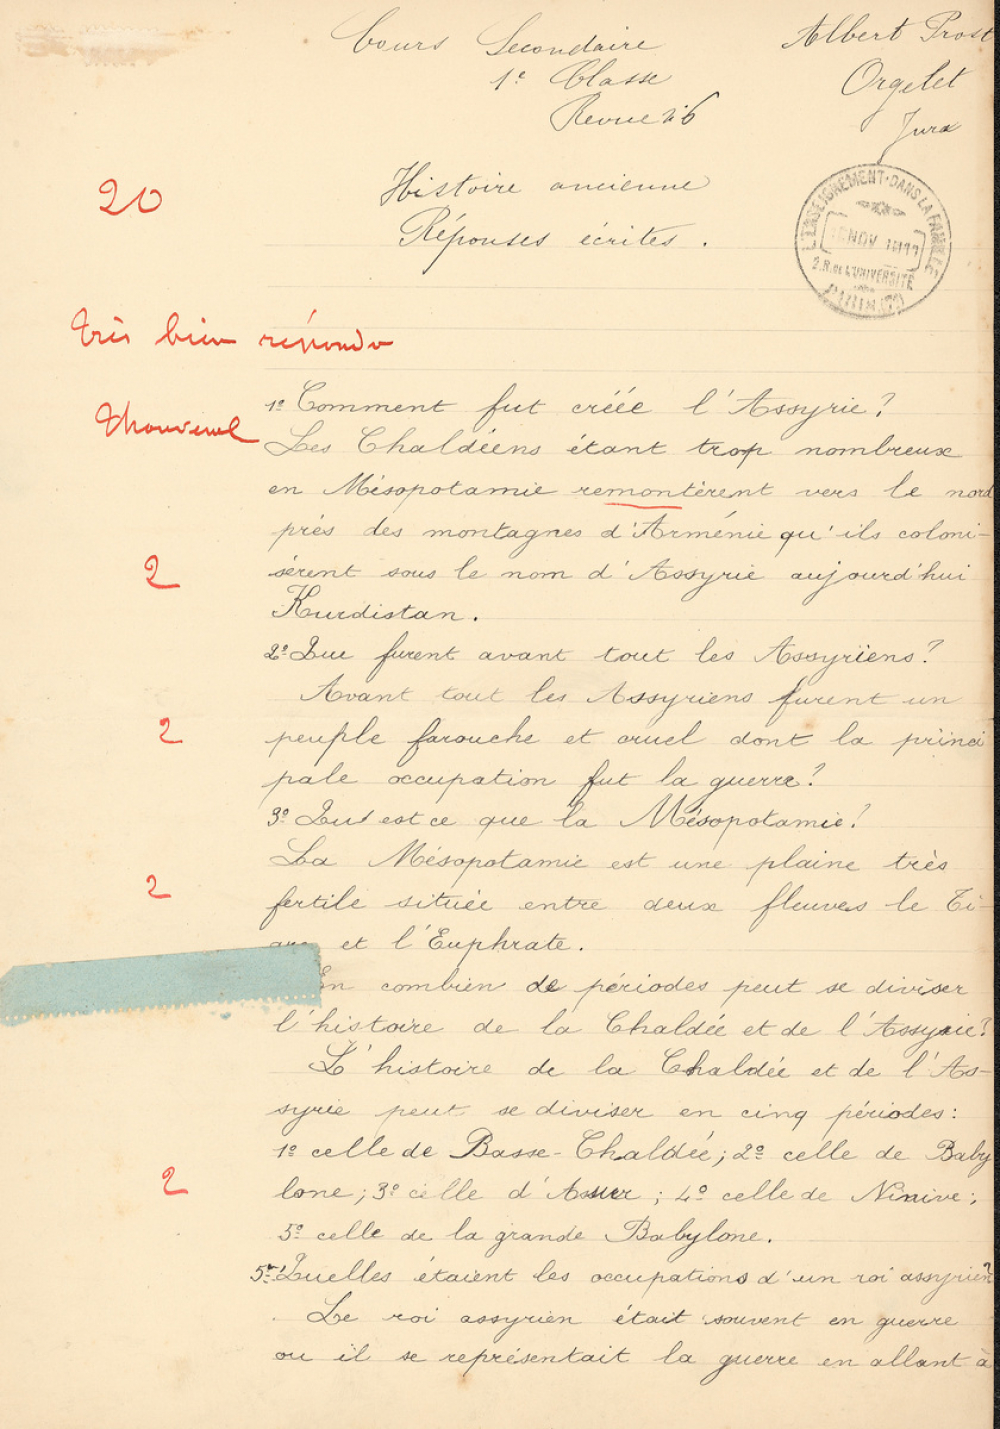 Cours Secondaire
Albert Prost
1e Classe
Orgelet
Revue n°6
Jura
20
Histoire ancienne
Réponses écrites.
L'ENSEIGNEMENT DANS LA FAMILLE
NOV
2. R. de L'UNIVERSITÉ
Très bien répondu
1º Comment fut créée l'Assyrie?
Les Chaldéens étant trop nombreux
en Mésopotamie remontèrent vers le nord
près des montagnes d'Arménie qu'ils coloni-
2
sèrent sous le nom d'Assyrie aujourd'hui
Kurdistan.
2º Que furent avant tout les Assyriens?
Avant tout les Assyriens furent un
2
peuple farouche et cruel dont la princi
pale occupation fut la guerre?
3º Qu'est ce que la Mésopotamie?
La Mésopotamie est une plaine très
2
fertile située entre deux fleuves le Ti-
gre et l'Euphrate.
En combien de périodes peut se diviser
l'histoire de la Chaldée et de l'Assyrie?
L'histoire de la Chaldée et de l'As-
syrie peut se diviser en cinq périodes:
1º celle de Basse-Chaldée; 2º celle de Baby
2
lone; 3º celle d'Assur; 4º celle de Ninive;
5º celle de la grande Babylone.
5º Quelles étaient les occupations d'un roi assyrien?
Le roi assyrien était souvent en guerre
ou il se représentait la guerre en allant à